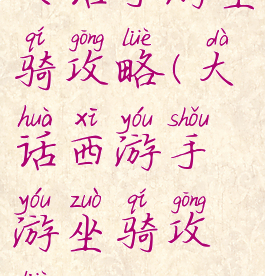 话手游坐
qí gōng lüè dà
骑攻略(大
huà xī yóu shǒu
话西游手
yóu zuò qí gōng
游坐骑攻